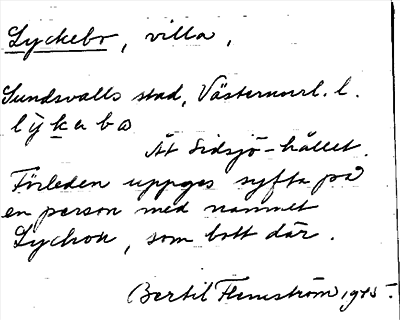 Lyckebo, villa,
Sundsvalls stad, Västernorrl. l.
Åt Sidsjö-hållet.
Förleden uppges syfta på
en person med namnet
Lychou, som bott där.
Bertil Flemström 1975.